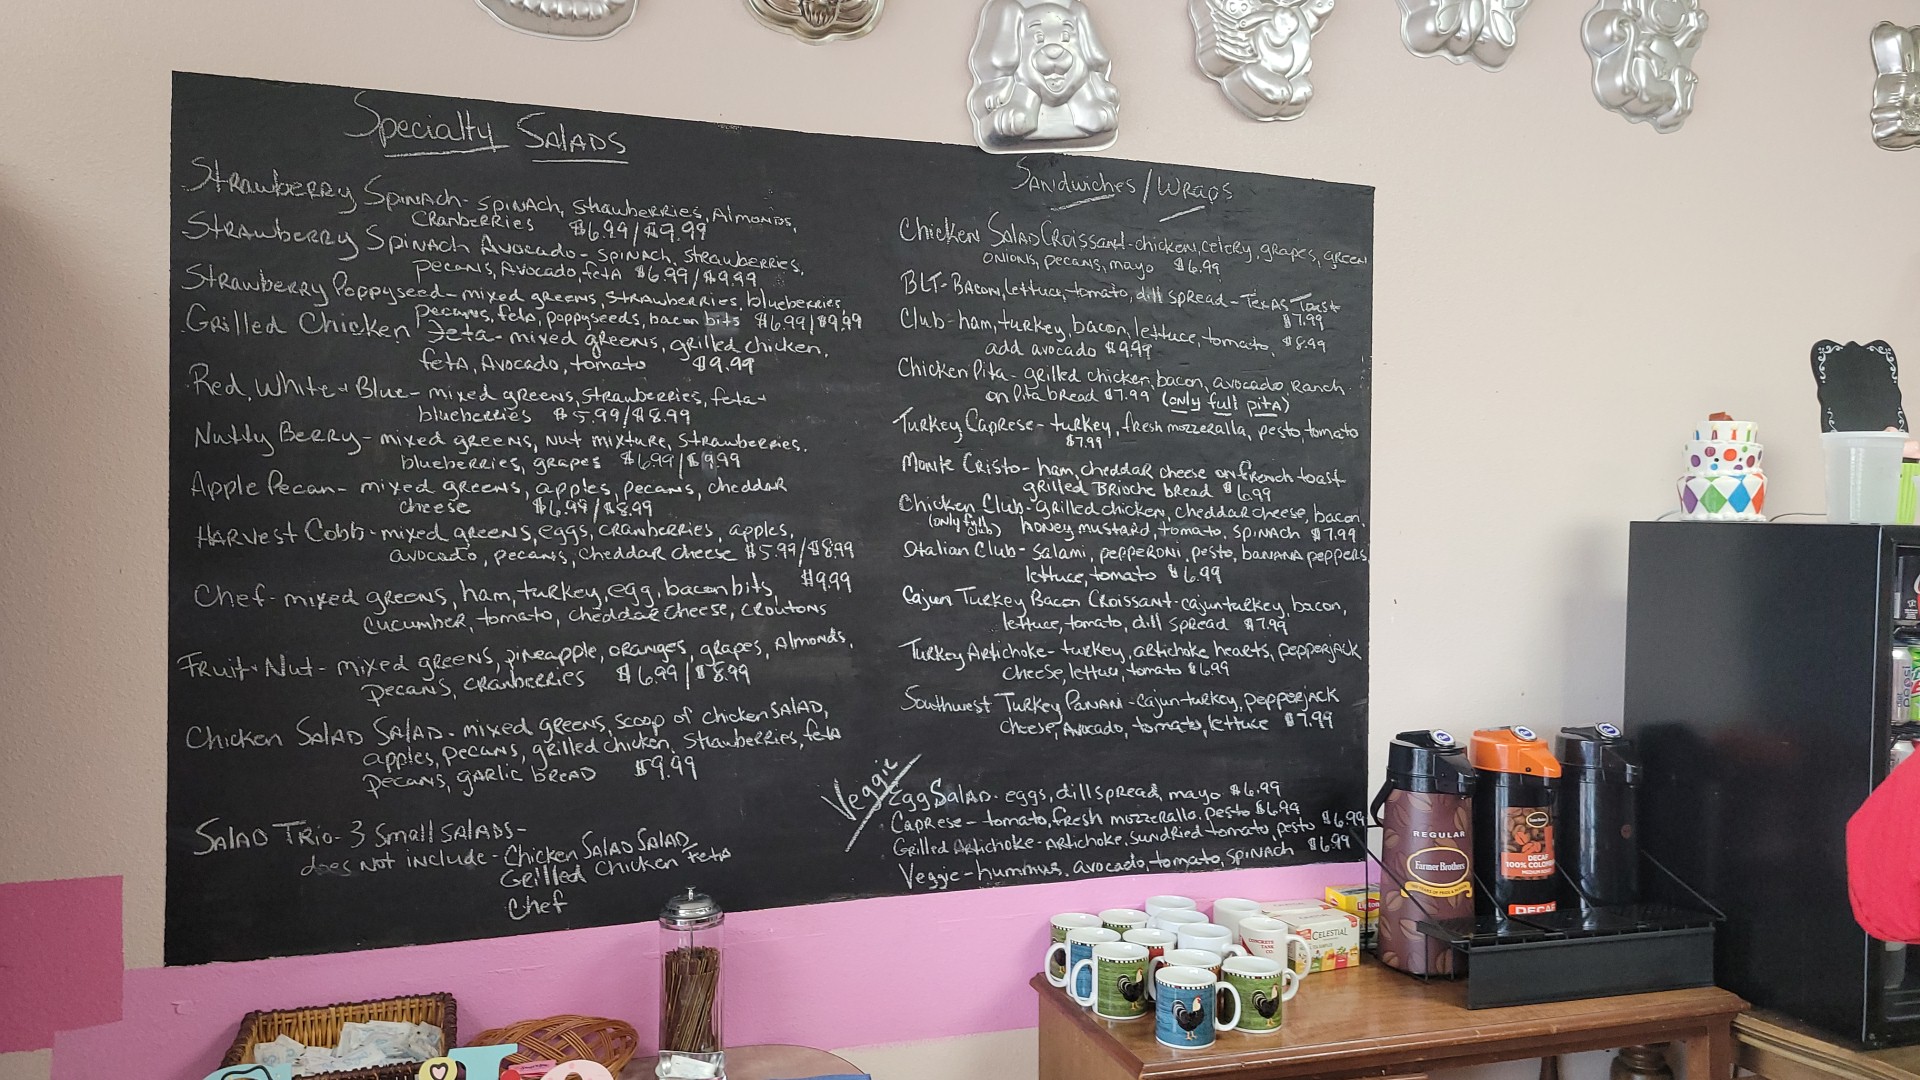 Specialty Salads
Strawberry Spinach - spinach, strawberries, Almonds,
cranberries $6.99/$9.99
Strawberry Spinach Avocado - spinach, strawberries,
pecans, Avocado, feta $6.99/$9.99
Strawberry Poppyseed - mixed greens, strawberries, blueberries,
pecans, feta, poppyseeds, bacon bits $6.99/$9.99
Grilled Chicken Feta - mixed greens, grilled chicken,
feta, Avocado, tomato $9.99
Red, White + Blue - mixed greens, strawberries, feta +
blueberries $5.99/$8.99
Nutty Berry - mixed greens, nut mixture, strawberries,
blueberries, grapes $6.99/$9.99
Apple Pecan - mixed greens, apples, pecans, cheddar
cheese $6.99/$8.99
Harvest Cobb - mixed greens, eggs, cranberries, apples,
avocado, pecans, cheddar cheese $5.99/$8.99
Chef - mixed greens, ham, turkey, egg, bacon bits, $9.99
cucumber, tomato, cheddar cheese, croutons
Fruit + Nut - mixed greens, pineapple, oranges, grapes, Almonds,
pecans, cranberries $6.99/$8.99
Chicken Salad Salad - mixed greens, scoop of chicken salad,
apples, pecans, grilled chicken, strawberries, feta
pecans, garlic bread $9.99
Salad Trio - 3 small salads -
does not include - Chicken Salad Salad
Grilled Chicken feta
Chef
Sandwiches / Wraps
Chicken Salad Croissant - chicken, celery, grapes, green
onions, pecans, mayo $6.99
BLT - Bacon, lettuce, tomato, dill spread - Texas Toast
$7.99
Club - ham, turkey, bacon, lettuce, tomato, $8.99
add avocado $9.99
Chicken Pita - grilled chicken, bacon, avocado, Ranch
on Pita bread $7.99 (only full pita)
Turkey Caprese - turkey, fresh mozzeralla, pesto, tomato
$7.99
Monte Cristo - ham, cheddar cheese on french toast
grilled Brioche bread $6.99
Chicken Club - grilled chicken, cheddar cheese, bacon,
(only full club) honey mustard, tomato, spinach $7.99
Italian Club - salami, pepperoni, pesto, banana peppers,
lettuce, tomato $6.99
Cajun Turkey Bacon Croissant - cajun turkey, bacon,
lettuce, tomato, dill spread $7.99
Turkey Artichoke - turkey, artichoke hearts, pepperjack
cheese, lettuce, tomato $6.99
Southwest Turkey Panani - Cajun turkey, pepperjack
cheese, Avocado, tomato, lettuce $7.99
Veggie
Egg Salad - eggs, dill spread, mayo $6.99
Caprese - tomato, fresh mozzeralla, pesto $6.99
Grilled Artichoke - Artichoke, sundried tomato, pesto $6.99
Veggie - hummus, avocado, tomato, spinach $6.99
REGULAR
Farmer Brothers
DECAF
100% COLOMBIAN
DECAF
Lipton
CELESTIAL
CONCRETE
TANK
CO.